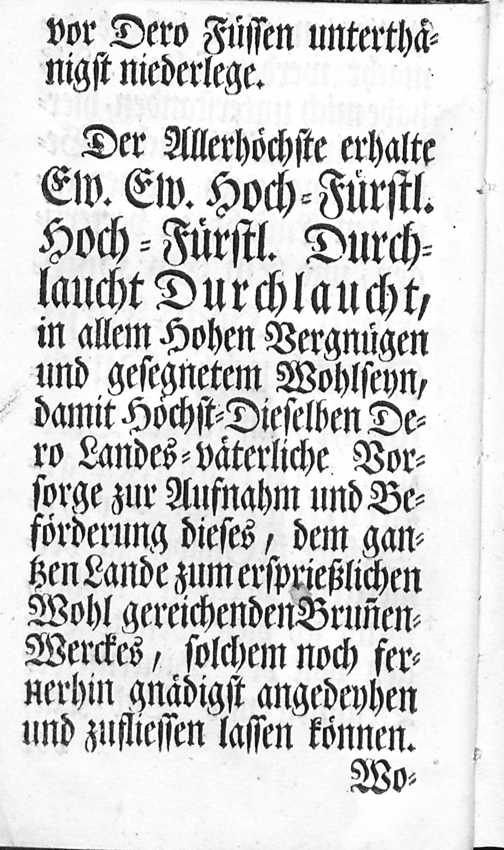 vor Dero Füssen unterthä-
nigst niederlege.
Der Allerhöchste erhalte
Ew. Ew. Hoch-Fürstl.
Hoch-Fürstl. Durch-
laucht Durchlaucht,
in allem Hohen Vergnügen
und gesegnetem Wohlseyn,
damit Höchst-Dieselben De-
ro Landes-väterliche Vor-
sorge zur Aufnahm und Be-
förderung dieses, dem gan-
tzen Lande zum ersprießlichen
Wohl gereichenden Brun̄en-
Werckes, solchem noch fer-
nerhin gnädigst angedeyhen
und zufliessen lassen können.
Wo-